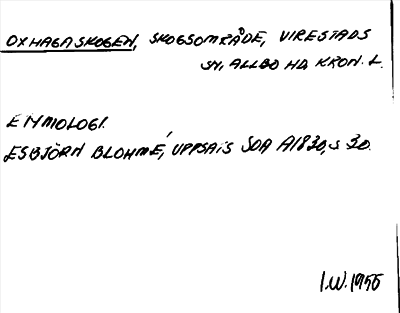 OXHAGASKOGEN, SKOGSOMRÅDE, VIRESTADS
SN, ALLBO HD KRON. L.
ETYMOLOGI.
ESBJÖRN BLOHMÉ, UPPSATS SOA A1830, S 30.
I.W. 1955